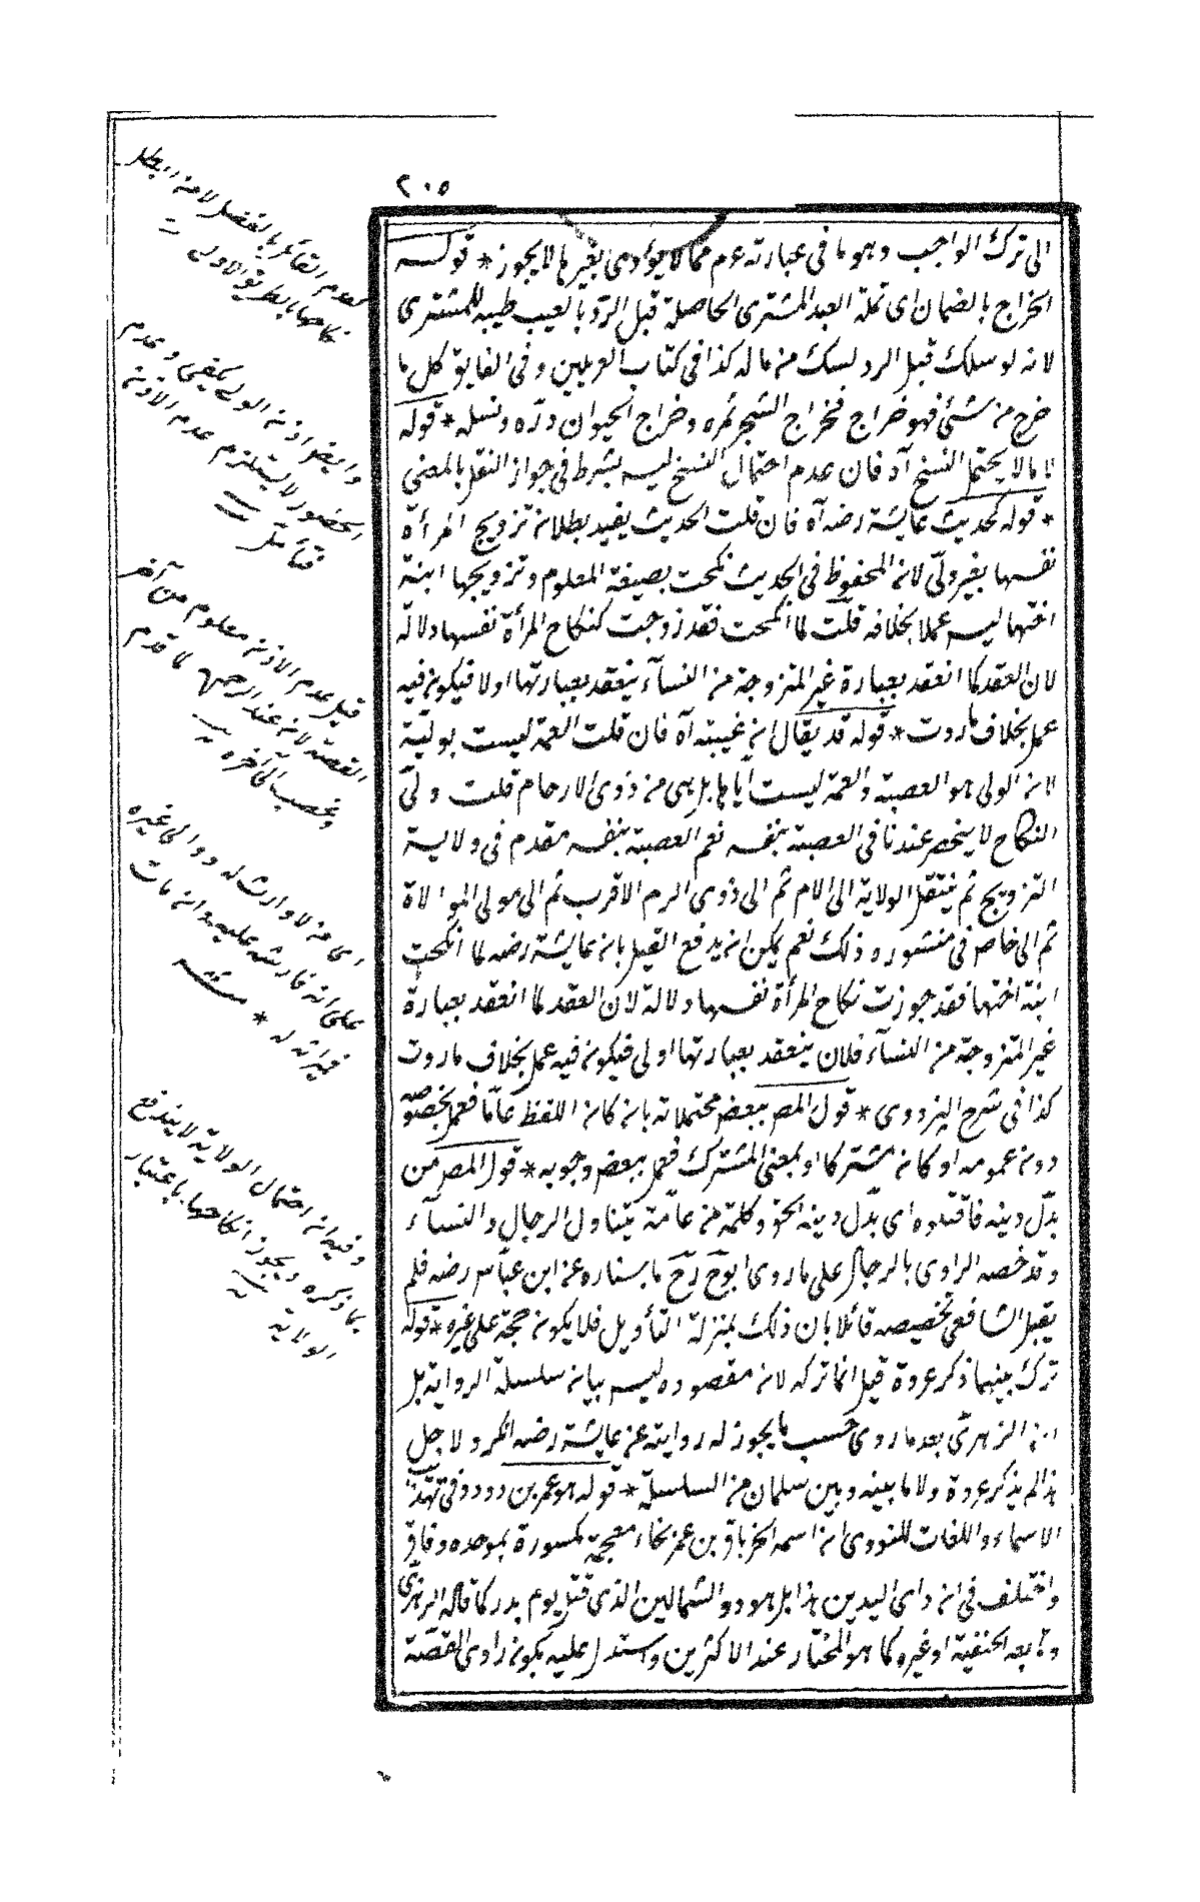 ٢٠٥
الى ترك الواجب وهو ما فى عبارته عدم مما لا يؤدى بغيرها لا يجوز * قوله
الخراج بالضمان اى غلة العبد المشترى الحاصلة قبل الرد بالعيب طيبة للمشترى
لانه لو سلك قبل الرد لسلك من ماله كذا فى كتاب الغريبين وفى الفايق كل ما
خرج من شئ فهو خراج فخراج الشجر ثمره وخراج الحيوان درّه ونسله * قوله
لا ما لا يحتمل النسخ آه فان عدم احتمال النسخ ليس بشرط فى جواز النقل بالمعنى
* قوله كحديث عايشة رضه آه فان قلت الحديث يفيد بطلان تزويج المرأة
نفسها بغير ولىّ لان المحفوظ فى الحديث نكحت بصيغة المعلوم وتزويجها ابنة
اخيها ليس عملا بخلافه قلت لما انكحت فقد زوجت كنكاح المرأة نفسها دلالة
لان العقد كما انعقد بعبارة غير المتزوجة من النسآء ينعقد بعبارتها اولا فيكون فيه
عمل بخلاف ما روت * قوله قد يقال ان غيبته آه فان قلت العمة ليست بوليّة
لان الولى هو العصبة والعمة ليست اياها بل هى من ذوى الارحام قلت ولىّ
النكاح لا ينحصر عندنا فى العصبة بنفسه نعم العصبة بنفسه مقدم فى ولاية
التزويج ثم ينتقل الولاية الى الام ثم الى ذوى الرحم الاقرب ثم الى مولى الموالاة
ثم الى قاض فى منشوره ذلك نعم يمكن ان يدفع القيل بان عايشة رضه لما انكحت
ابنة اخيها فقد جوزت نكاح المرأة نفسها دلالة لان العقد لما انعقد بعبارة
غير المتزوجة من النسآء فلان ينعقد بعبارتها اولى فيكون فيه عمل بخلاف ما روت
كذا فى شرح البزدوى * قول المص ببعض محتملاته بان كان اللفظ عامّا فعمل بخصوصه
دون عمومه او كان مشتركا او بمعنى المشترك فعمل ببعض وجوهه * قول المص من
بدّل دينه فاقتلوه اى بدّل دينه الحق وكلمة من عامّة يتناول الرجال والنسآء
وقد خصه الراوى بالرجال على ما روى ابوح رح باسناده عن ابن عباس رضه فلم
يقبل الشافعى تخصيصه قائلا بان ذلك بمنزلة التأويل فلا يكون حجة على غيره * قوله
ترك بينهما ذكر عروة قيل انما تركه لان مقصوده ليس بيان سلسلة الرواية بل
ان الزهرىّ بعد ما روى حسب ما يجوز له رواية عن عايشة رضه انكر ولاجل
هذا لم يذكر عروة ولا ما بينه وبين سلمان من السلسلة * قوله هو عمر بن دود وفى تهذيب
الاسماء واللغات للنووى ان اسمه الخرباق بن عمر بخاء معجمة مكسورة بموحده وقاف
واختلف فى ان ذى اليدين هذا بل هو ذو الشمالين الذى قتل يوم بدر كما قاله الزهرى
وتابعه الحنفية او غيره كما هو المختار عند الاكثرين واستدل عليه بكون راوى القصّة
لعدم القائل بالفصل لانه اذا بطل
نكاحها بطريق الاولى
وايضا اذن الولى يكفى وعدم
الحضور لا يستلزم عدم الاذن
فتأمل
قيل عدم الاذن معلوم من آخر
القصة لان عبد الرحمن لما قدم
غضب الى آخره
اى من لا وارث له ووالى غيره
على انه وارثه عليه وان مات
فميراثه له *
وفيه ان احتمال الولاية لا يندفع
بما ذكره ويجوز انكاحها باعتبار
الولاية